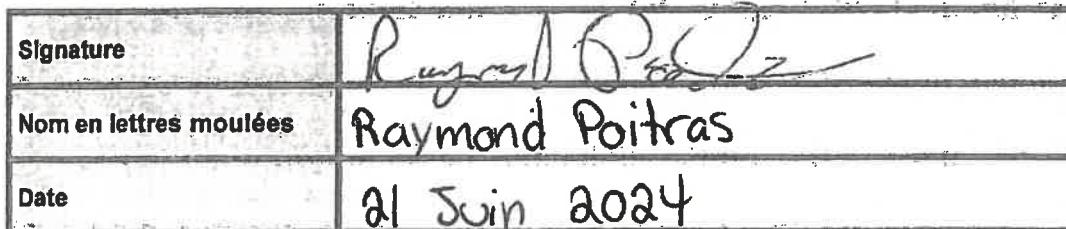 Signature Raymond Poitras
Nom en lettres moulées Raymond Poitras
Date 21 Juin 2024